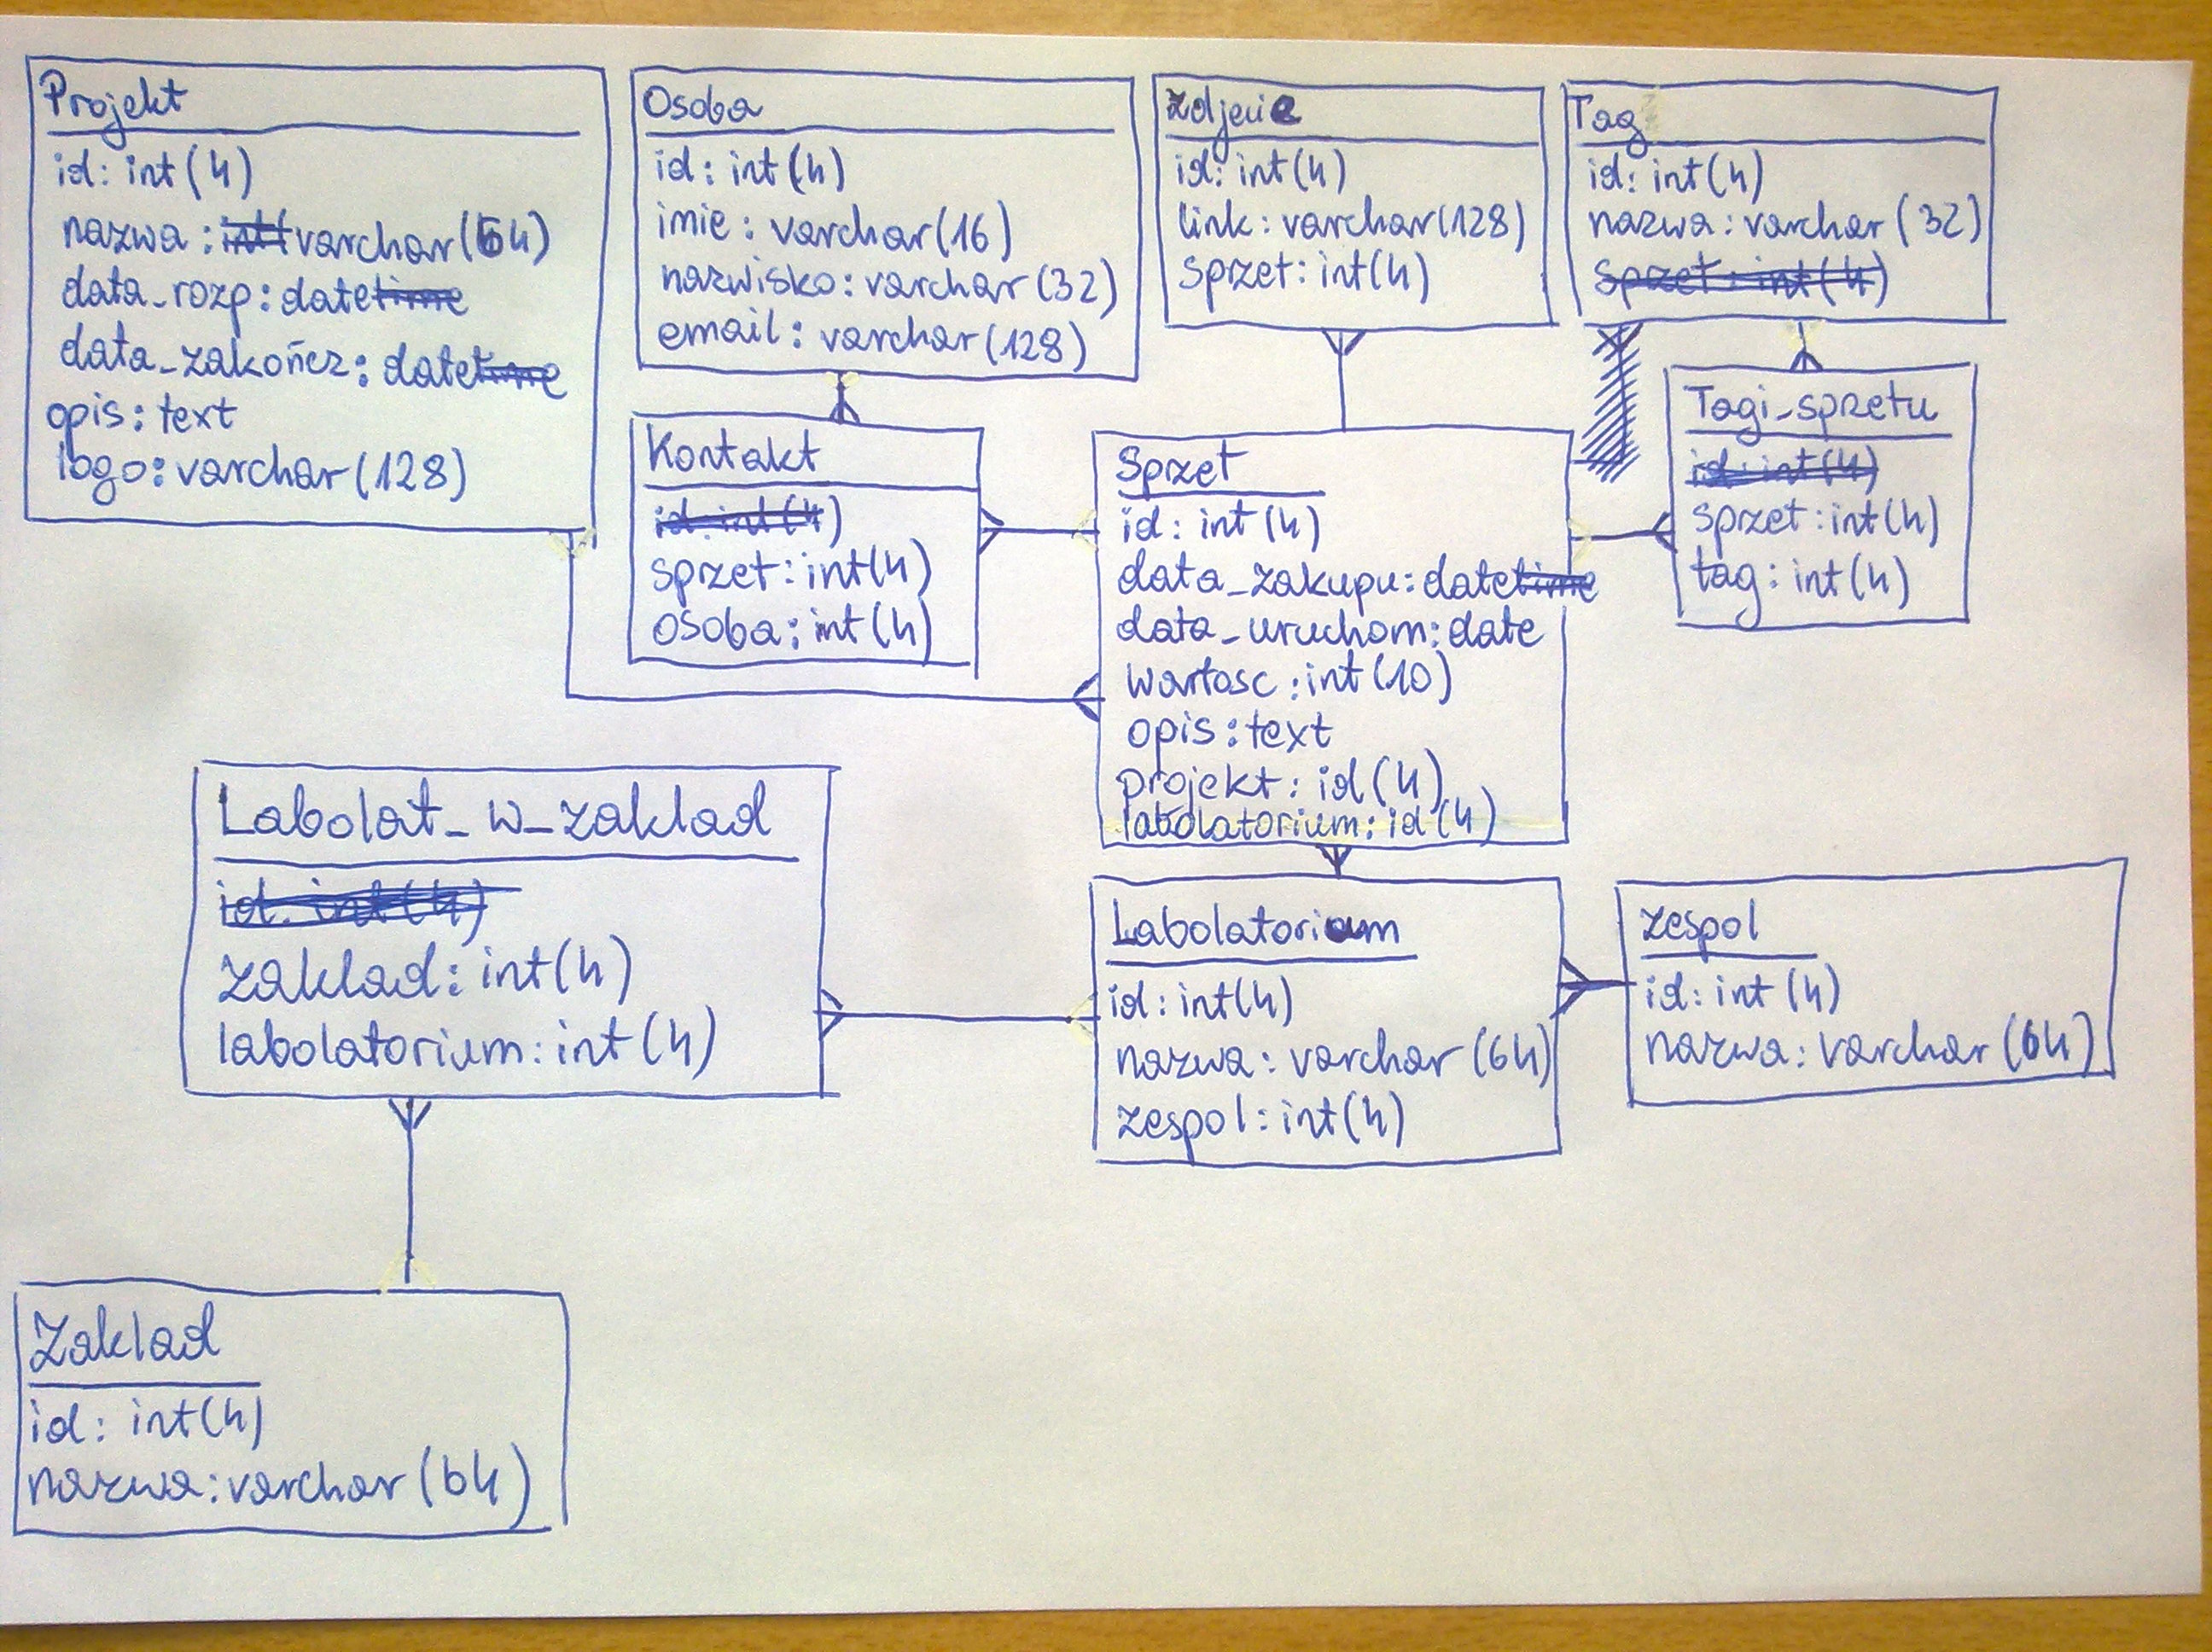 Projekt
id: int(4)
nazwa: int( varchar(64)
data_rozp: datetime
data_zakończ: datetime
opis: text
logo: varchar(128)
Osoba
id: int(4)
imie: varchar(16)
nazwisko: varchar(32)
email: varchar(128)
zdjecie
id: int(4)
link: varchar(128)
sprzet: int(4)
Tag
id: int(4)
nazwa: varchar(32)
sprzet: int(4)
Kontakt
id: int(4)
sprzet: int(4)
osoba: int(4)
Sprzet
id: int(4)
data_zakupu: datetime
data_uruchom: date
wartosc: int(10)
opis: text
projekt: id(4)
labolatorium: id(4)
Tagi_sprzetu
id: int(4)
sprzet: int(4)
tag: int(4)
Labolat_w_zaklad
id: int(4)
zaklad: int(4)
labolatorium: int(4)
Labolatorium
id: int(4)
nazwa: varchar(64)
zespol: int(4)
zespol
id: int(4)
nazwa: varchar(64)
Zaklad
id: int(4)
nazwa: varchar(64)